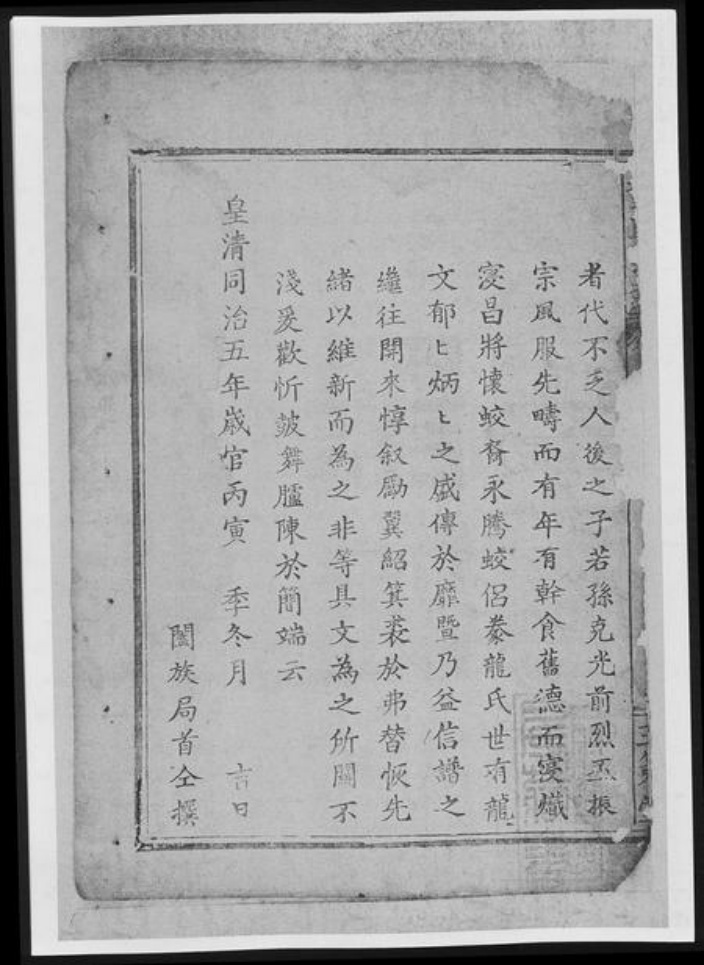 者代不乏人後之子若孫克光前烈丕振
宗風服先疇而有年有幹食舊德而寖熾
寖昌將懷蛟裔永騰蛟侶豢龍氏世有龍
文郁ヒ炳ヒ之盛傳於靡曁乃益信譜之
繼往開來惇叙勵翼紹箕裘於弗替恢先
緒以維新而為之非等具文為之所關不
淺爰歡忻鼓舞臚陳於簡端云
皇清同治五年歲官丙寅 季冬月 吉日
闔族局首仝撰